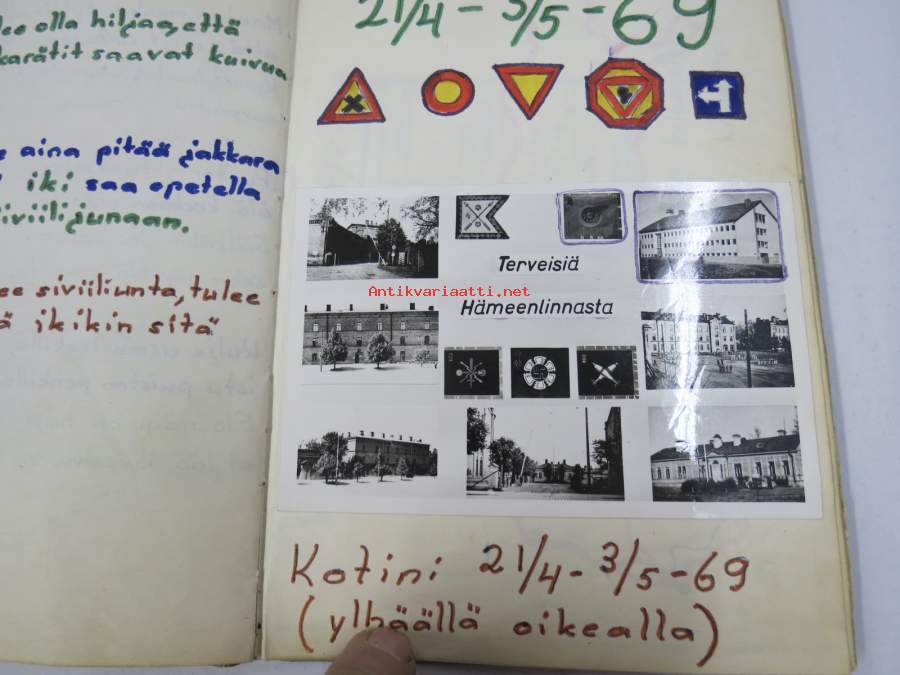 ee olla hiljaa, että
karätit saavat kuivua
e aina pitää jakkara
iki saa opetella
siviilijunaan.
ee siviiliunta, tulee
ä ikikin sitä
21/4 - 3/5 - 69
Terveisiä
Antikvariaatti.net
Hämeenlinnasta
Kotini 21/4 - 3/5 - 69
(ylhäällä oikealla)